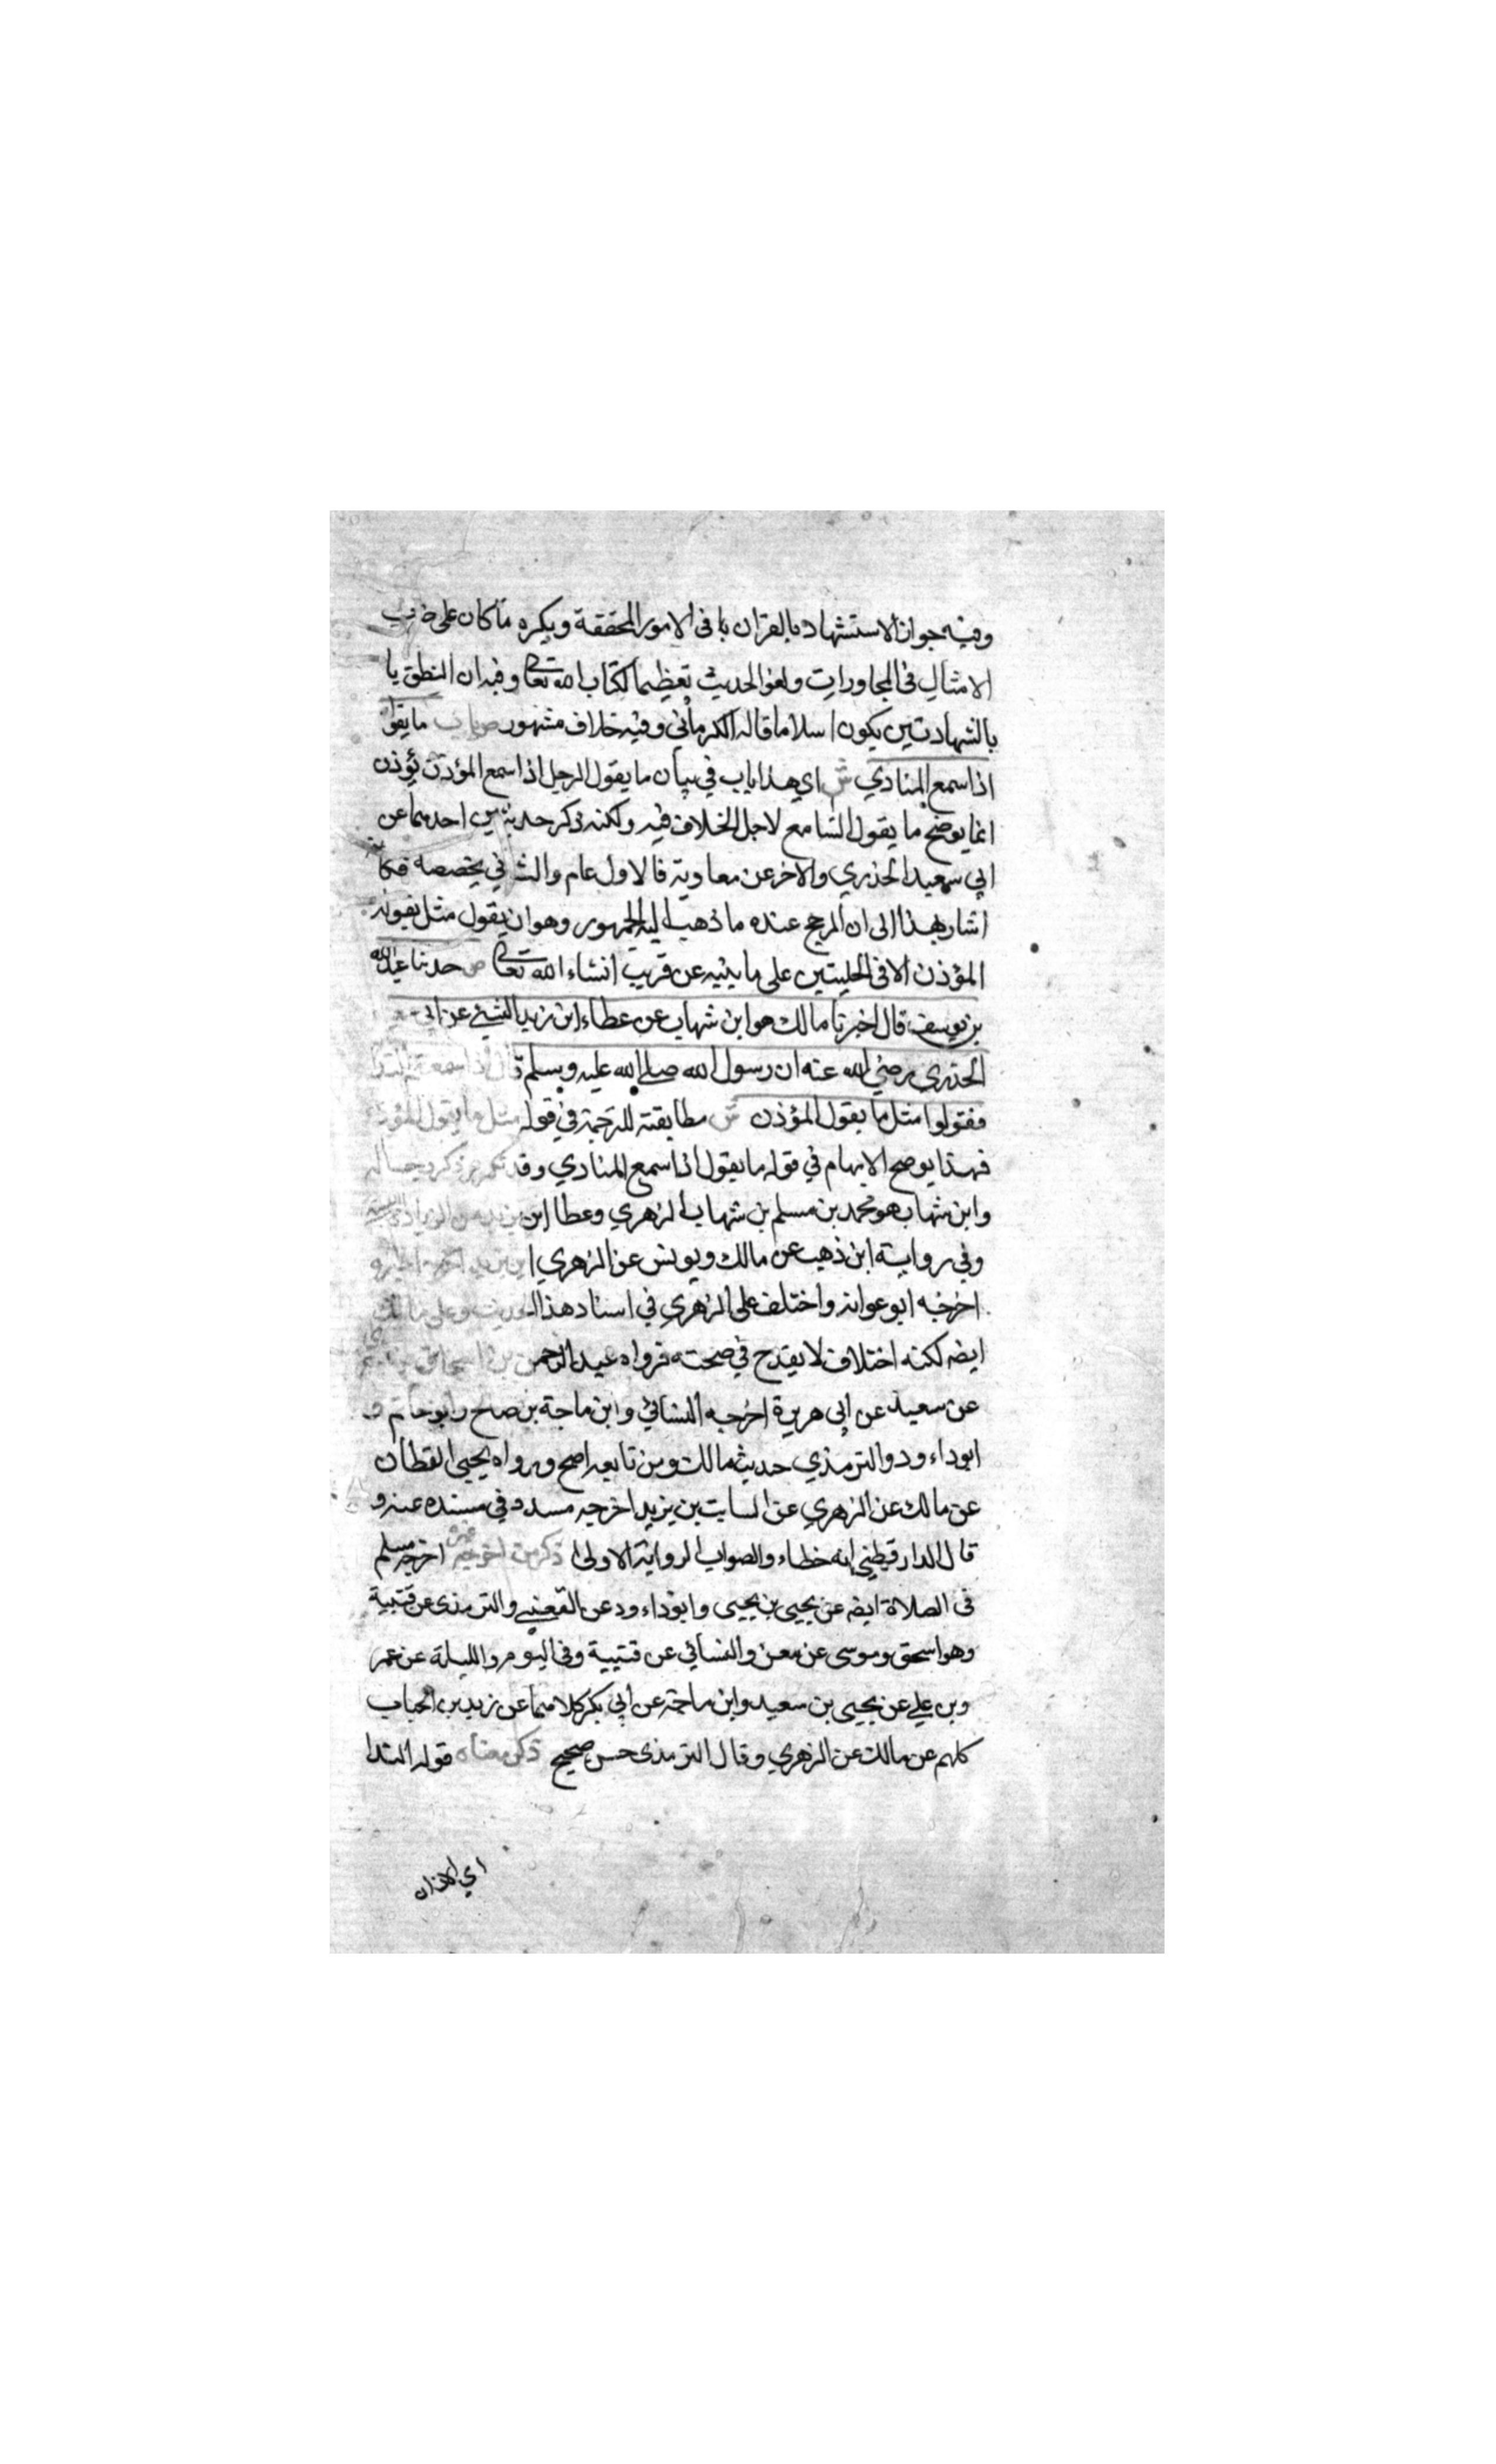 وفيه جواز الاستشهاد بالقران با فى الامور المحققة ويكره ما كان على ضرب
الامثال فى المجاورات ولغو الحديث تعظيما لكتاب الله تعالى وفيه ان النطق با
بالشهادتين يكون اسلاما قاله الكرماني وفيه خلاف مشهور ص باب ما يقول
اذا سمع المنادي ش اي هذا باب في بيان ما يقول الرجل اذا سمع المؤذن يؤذن
انما يوضح ما يقول السامع لاجل الخلاف فيه ولكنه ذكر حديثين احدهما عن
ابي سعيد الخذري والاخر عن معاوية فالاول عام والثاني يخصصه فكانه
اشار بهذا الى ان المرجح عنده ما ذهب اليه الجمهور وهو ان يقول مثل يقوله
المؤذن الا فى الحليتين على ما يثيه عن قريب انشاء الله تعالى ص حدثنا عبد الله
بن يوسف قال اخبرنا مالك هو ابن شهاب عن عطاء ابن زيد الليثي عن ابي
الخذري رضي الله عنه ان رسول الله صلى الله عليه وسلم قال اذا سمعتم الندا
فقولوا مثل ما يقول المؤذن ش مطابقته للترجمة في قوله مثل ما يقول المؤذن
فهذا يوضح الابهام في قوله ما يقول اذا سمع المنادي وقد تكرر ذكر رجاله
وابن شهاب هو محمد بن مسلم بن شهاب الزهري وعطا ابن يزيد من الزيادة
وفي رواية ابن ذهب عن مالك ويونس عن الزهري ان
اخرجه ابو عوانه واختلف على الزهري في اسناد هذا الحديث وعلى مالك
ايضه لكنه اختلاف لا يقدح في صحته فرواه عبد الرحمن بن اسحاق
عن سعيد عن ابى هريرة اخرجه النسائي وابن ماجة بن صالح وابو حاتم و
ابوداء ود والترمذي حديث مالك ومن تابعه اصح ورواه يحيى القطان
عن مالك عن الزهري عن السايب بن يزيد اخرجه مسدد في مسنده عنه و
قال الدارقطني انه خطاء والصواب الرواية الاولى ذكر من اخرجه غيره اخرجه مسلم
فى الصلاة ايضه عن يحيى بن يحيى وابوداء ود عن القعنبي والترمذى عن قتيبة
وهو اسحق وموسى عن معن والنسائي عن قتيبة وفى اليوم والليلة عن عمر
وبن علي عن يحيى بن سعيد وابن ماجة عن ابي بكر كلاهما عن زيد بن الحباب
كلهم عن مالك عن الزهري وقال الترمذى حسن صحيح ذكر معناه قوله الندا
اي الاذان